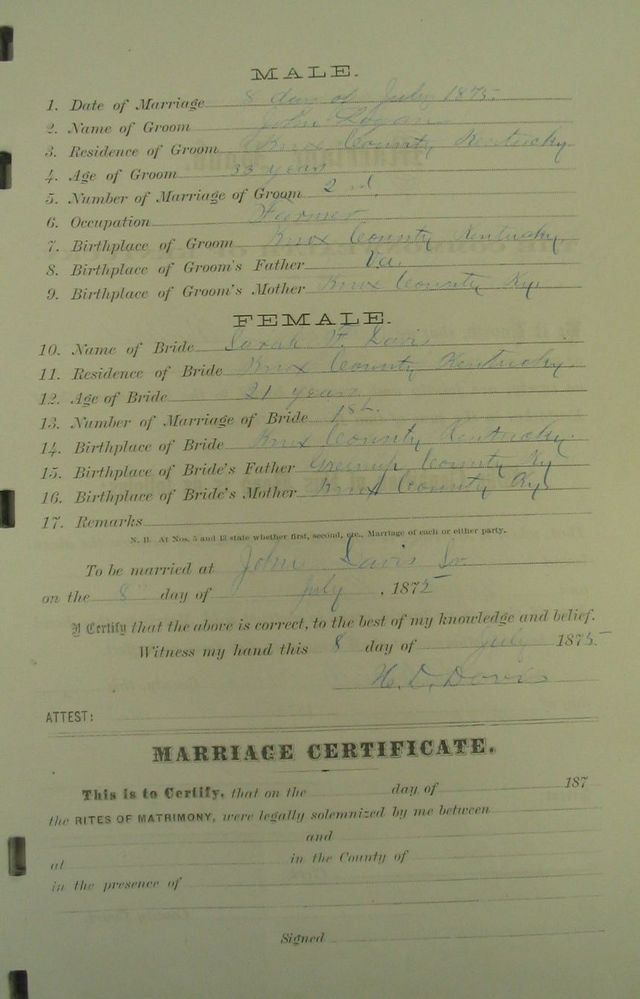 MALE.
1. Date of Marriage 8 day of July 1875.
2. Name of Groom John Logan
3. Residence of Groom Knox County Kentucky
4. Age of Groom 33 years
5. Number of Marriage of Groom 2nd.
6. Occupation Farmer
7. Birthplace of Groom Knox County Kentucky
8. Birthplace of Groom's Father Va.
9. Birthplace of Groom's Mother Knox County Ky.
FEMALE.
10. Name of Bride Sarah F. Davis
11. Residence of Bride Knox County Kentucky
12. Age of Bride 21 years
13. Number of Marriage of Bride 1st.
14. Birthplace of Bride Knox County Kentucky.
15. Birthplace of Bride's Father Greenup County Ky
16. Birthplace of Bride's Mother Knox County Ky
17. Remarks
N. B. At Nos. 5 and 13 state whether first, second, etc., Marriage of each or either party.
To be married at John Davis Sr.
on the 8 day of July , 1875
I Certify that the above is correct, to the best of my knowledge and belief.
Witness my hand this 8 day of July 1875.
H. D. Davis
ATTEST:
MARRIAGE CERTIFICATE.
This is to Certify, that on the day of 187
the RITES OF MATRIMONY, were legally solemnized by me between
and
at in the County of
in the presence of
Signed